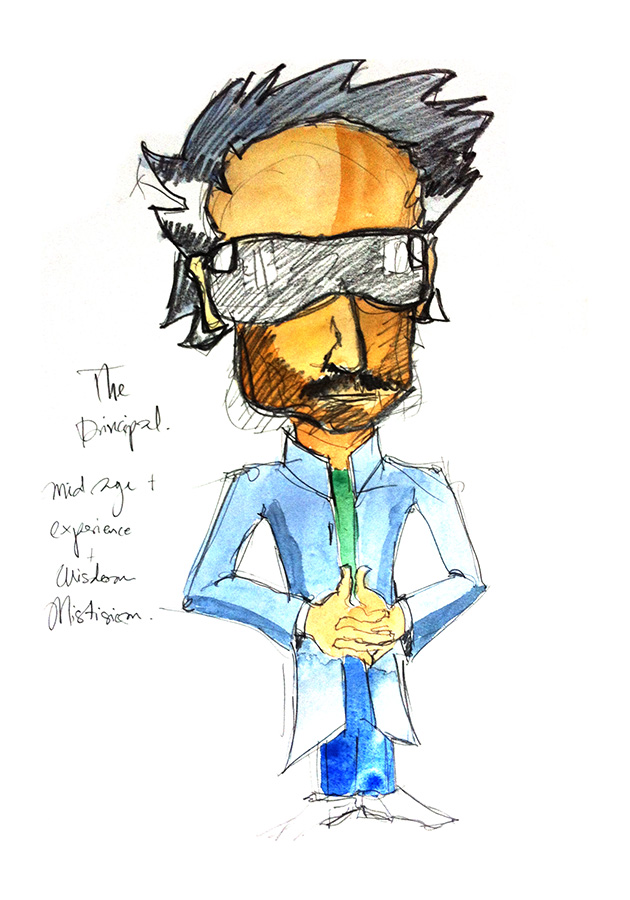 The
Principal.
Mid age +
experience
+
Wisdom
Mistisism.